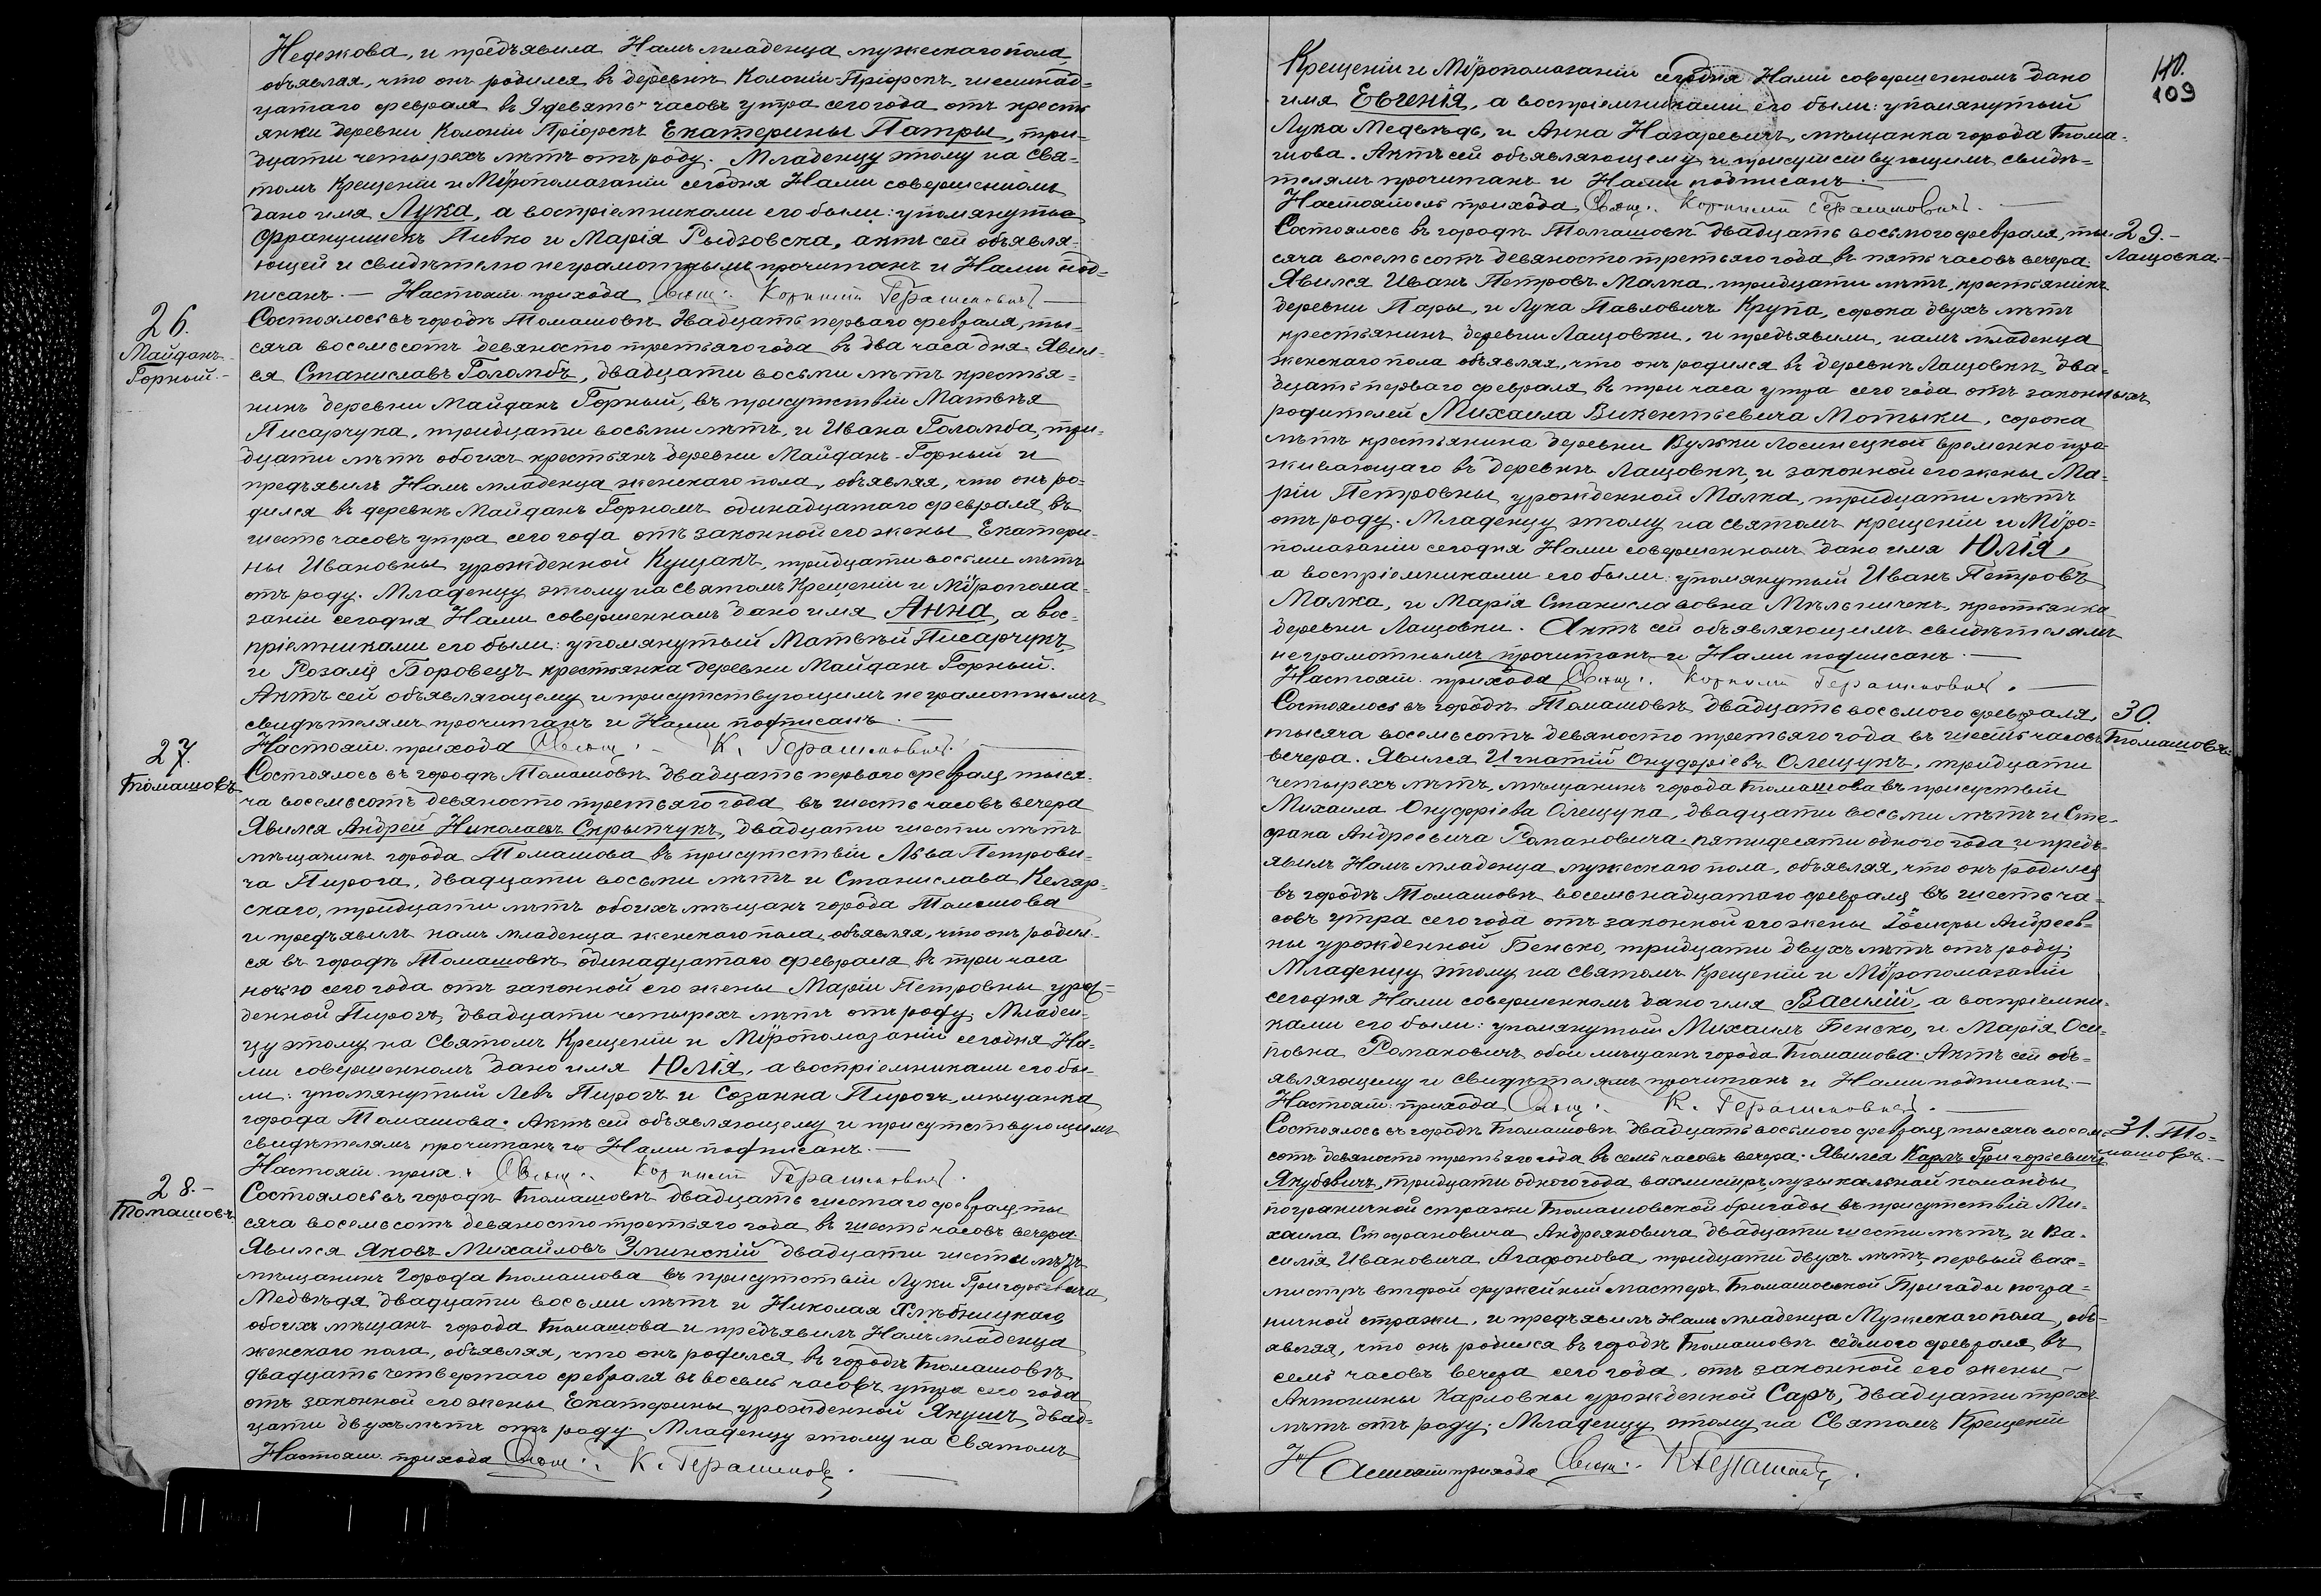 Недежова, и предъявила Намъ младенца мужескаго пола,
объявляя, что онъ родился въ деревнѣ Колоніи-Пріорскъ, шестнад-
цатаго февраля въ 9 девять часовъ утра сего года отъ кресть
янки деревни Колоніи Пріорскъ Екатерины Патры, три-
дцати четырехъ лѣтъ отъ роду. Младенцу этому на Свя-
томъ Крещеніи и Мѵропомазаніи сегодня Нами совершенномъ
дано имя Лука, а воспріемниками его были: упомянутые
Францишекъ Пивко и Марія Рыдзовска, актъ сей объявля-
ющей и свидѣтелю неграмотнымъ прочитанъ и Нами под-
писанъ. — Настоят. прихода Свящ. Корнилій Герашковичъ
26.
Майданъ-
Горный.-
Состоялось въ городѣ Томашовѣ двадцать перваго февраля, ты-
сяча восемьсотъ девяносто третьяго года въ два часа дня. Явил-
ся Станиславъ Голомбъ, двадцати восьми лѣтъ крестья-
нинъ деревни Майданъ Горный, въ присутствіи Матвѣя
Писарчука, тридцати восьми лѣтъ, и Ивана Голомба, три-
дцати лѣтъ обоихъ крестьянъ деревни Майданъ-Горный и
предъявилъ Намъ младенца женскаго пола, объявляя, что онъ ро-
дился въ деревнѣ Майданъ Горномъ одинадцатаго февраля въ
шесть часовъ утра сего года отъ законной его жены Екатери-
ны Ивановны урожденной Куцанъ, тридцати восьми лѣтъ
отъ роду. Младенцу этому на Святомъ Крещеніи и Мѵропома-
заніи сегодня Нами совершенномъ дано имя Анна, а вос-
пріемниками его были: упомянутый Матвѣй Писарчукъ
и Розалія Боровецъ крестьянка деревни Майданъ Горный.
Актъ сей объявляющему и присутствующимъ неграмотнымъ
свидѣтелямъ прочитанъ и Нами подписанъ. —
Настоят. прихода Свящ. - К. Герашковичъ.
27.
Томашовъ
Состоялось въ городѣ Томашовѣ двадцать перваго февраля, тыся-
ча восемьсотъ девяносто третьяго года въ шесть часовъ вечера
Явился Андрей Николаевъ Скрыпчукъ, двадцати шести лѣтъ
мѣщанинъ города Томашова въ присутствіи Льва Петрови-
ча Пирога, двадцати восьми лѣтъ и Станислава Келяр-
скаго, тридцати лѣтъ обоихъ мѣщанъ города Томашова
и предъявилъ намъ младенца женскаго пола, объявляя, что онъ родил-
ся въ городѣ Томашовѣ одинадцатаго февраля въ три часа
ночью сего года отъ законной его жены Маріи Петровны урож-
денной Пирогъ, двадцати четырехъ лѣтъ отъ роду. Младен-
цу этому на Святомъ Крещеніи и Мѵропомазаніи сегодня На-
ми совершенномъ дано имя Юлія, а воспріемниками его бы-
ли: упомянутый Левъ Пирогъ и Созанна Пирогъ, мѣщанка
города Томашова. Актъ сей объявляющему и присутствующимъ
свидѣтелямъ прочитанъ и Нами подписанъ. —
Настоят. прих. Свящ. Корнилій Герашковичъ.
28.-
Томашовъ
Состоялось въ городѣ Томашовѣ двадцать шестаго февраля, ты
сяча восемьсотъ девяносто третьяго года въ шесть часовъ вечера
Явился Яковъ Михайловъ Уминскій двадцати шести лѣтъ
мѣщанинъ города Томашова въ присутствіи Луки Григорьевича
Медвѣдя двадцати восьми лѣтъ и Николая Хлѣбницкаго,
обоихъ мѣщанъ города Томашова и предъявилъ Намъ младенца
женскаго пола, объявляя, что онъ родился въ городѣ Томашовѣ
двадцать четвертаго февраля въ восемь часовъ утра сего года
отъ законной его жены Екатерины урожденной Янушъ, двад-
цати двухъ лѣтъ отъ роду Младенцу этому на Святомъ
Настоят. прихода Свящ. К. Герашковъ
110.
109
Крещеніи и Мѵропомазаніи сегодня Нами совершенномъ дано
имя Евгенія, а воспріемниками его были: упомянутый
Лука Медвѣдь, и Анна Назаревичъ, мѣщанка города Тома-
шова. Актъ сей объявляющему и присутствующимъ свидѣ-
телямъ прочитанъ и Нами подписанъ. —
Настоятель прихода, Свящ. Корнилій Герашковичъ. —
29.-
Лащовка.-
Состоялось въ городѣ Томашовѣ двадцать восьмого февраля, ты-
сяча восемьсотъ девяносто третьяго года въ пять часовъ вечера.
Явился Иванъ Петровъ Малка, тридцати лѣтъ, крестьянинъ
деревни Пары, и Лука Павловичъ Крупа, сорока двухъ лѣтъ
крестьянинъ деревни Лащовки, и предъявили, намъ младенца
женскаго пола объявляя, что онъ родился въ деревнѣ Лащовкѣ, два-
дцать перваго февраля въ три часа утра сего года отъ законныхъ
родителей Михаила Викентьевича Мотыки, сорока
лѣтъ крестьянина деревни Вульки Лосинецкой временно про-
живающаго въ деревнѣ Лащовкѣ, и законной его жены Ма-
ріи Петровны урожденной Малка, тридцати лѣтъ
отъ роду. Младенцу этому на святомъ крещеніи и Мѵро-
помазаніи сегодня Нами совершенномъ дано имя Юлія,
а воспріемниками его были: упомянутый Иванъ Петровъ
Малка, и Марія Станиславовна Мѣльничекъ, крестьянка
деревни Лащовки. Актъ сей объявляющимъ свидѣтелямъ
неграмотнымъ прочитанъ и Нами подписанъ. —
Настоят. прихода Свящ. Корнилій Герашковичъ. —
30.
Томашовъ.
Состоялось въ городѣ Томашовѣ двадцать восьмого февраля,
тысяча восемьсотъ девяносто третьяго года въ шесть часовъ
вечера. Явился Игнатій Онуфріевъ Олещукъ, тридцати
четырехъ лѣтъ, мѣщанинъ города Томашова въ присутствіи
Михаила Онуфріева Олещука, двадцати восьми лѣтъ и Сте-
фана Андреевича Романовича, пятидесяти одного года и предъ-
явилъ Намъ младенца мужескаго пола, объявляя, что онъ родился
въ городѣ Томашовѣ восемьнадцатаго февраля въ шесть ча-
совъ утра сего года отъ законной его жены Андреев-
ны урожденной Бенько, тридцати двухъ лѣтъ отъ роду;
Младенцу этому на святомъ Крещеніи и Мѵропомазаніи
сегодня Нами совершенномъ дано имя Василій, а воспріемни-
ками его были: упомянутый Михаилъ Бенько, и Марія Оси-
повна Романовичъ обои мѣщанъ города Томашова. Актъ сей объ-
являющему и свидѣтелямъ прочитанъ и Нами подписанъ. —
Настоят. прихода Свящ. К. Герашковичъ. —
31. То-
машовъ.-
Состоялось въ городѣ Томашовѣ двадцать восьмого февраля, тысяча восемь-
сотъ девяносто третьяго года въ семь часовъ вечера. Явился Карлъ Григорьевичъ
Якубовичъ, тридцати одного года вахмистръ музыкальной команды
пограничной стражи Томашовской бригады въ присутствіи Ми-
хаила Стефановича Андреяновича двадцати шести лѣтъ, и Ва-
силія Ивановича Агафонова, тридцати двухъ лѣтъ, первый вах-
мистръ второй оружейный мастеръ Томашовской Бригады погра-
ничной стражи, и предъявилъ Намъ младенца Мужескаго пола, объ-
являя, что онъ родился въ городѣ Томашовѣ седмого февраля въ
семь часовъ вечера сего года, отъ законной его жены —
Антонины Карловны урожденной Саръ, двадцати трехъ
лѣтъ отъ роду; Младенцу этому на Святомъ Крещеніи
Настоят прихода Свящ. К Герашковъ